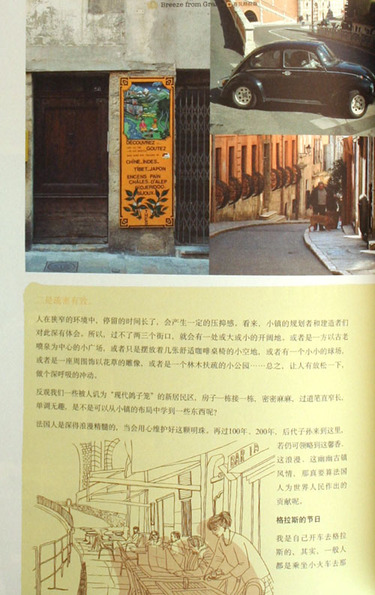 Breeze from Gra
DÉCOUVREZ
GOUTEZ
CHINE, INDES,
TIBET, JAPON
ENCENS PAIN
CHALES D'ALEP
BIJOUX
二是疏密有致。
人在狭窄的环境中，停留的时间长了，会产生一定的压抑感。看来，小镇的规划者和建造者们
对此深有体会。所以，过不了两三个街口，就会有一处或大或小的开阔地。或者是一方以古老
喷泉为中心的小广场，或者只是摆放着几张舒适咖啡桌椅的小空地，或者有一个小小的球场，
或者是一座周围饰以花草的雕像，或者是一个林木扶疏的小公园……总之，让人有放松一下，
做个深呼吸的冲动。
反观我们一些被人讥为“现代鸽子笼”的新居民区，房子一栋接一栋，密密麻麻，过道笔直窄长，
单调无趣。是不是可以从小镇的布局中学到一些东西呢？
法国人是深得浪漫精髓的，当会用心维护好这颗明珠。再过100年、200年，后代子孙来到这里，
若仍可领略到这馨香、
这浪漫、这幽幽古镇
风情，那真要算法国
人为世界人民作出的
贡献呢。
格拉斯的节日
我是自己开车去格拉
斯的，其实，一般人
都是乘坐小火车去那
BAR